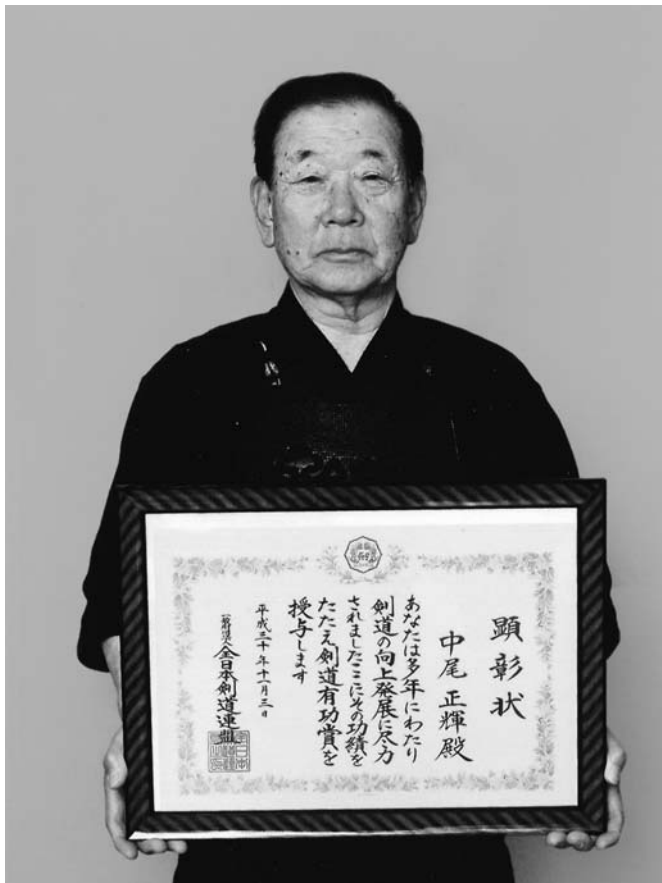 顕彰状
中尾正輝殿
あなたは多年にわたり
剣道の向上発展に尽力
されましたここにその功績を
たたえ剣道有功賞を
授与します
平成三十年十一月三日
一般財団法人全日本剣道連盟